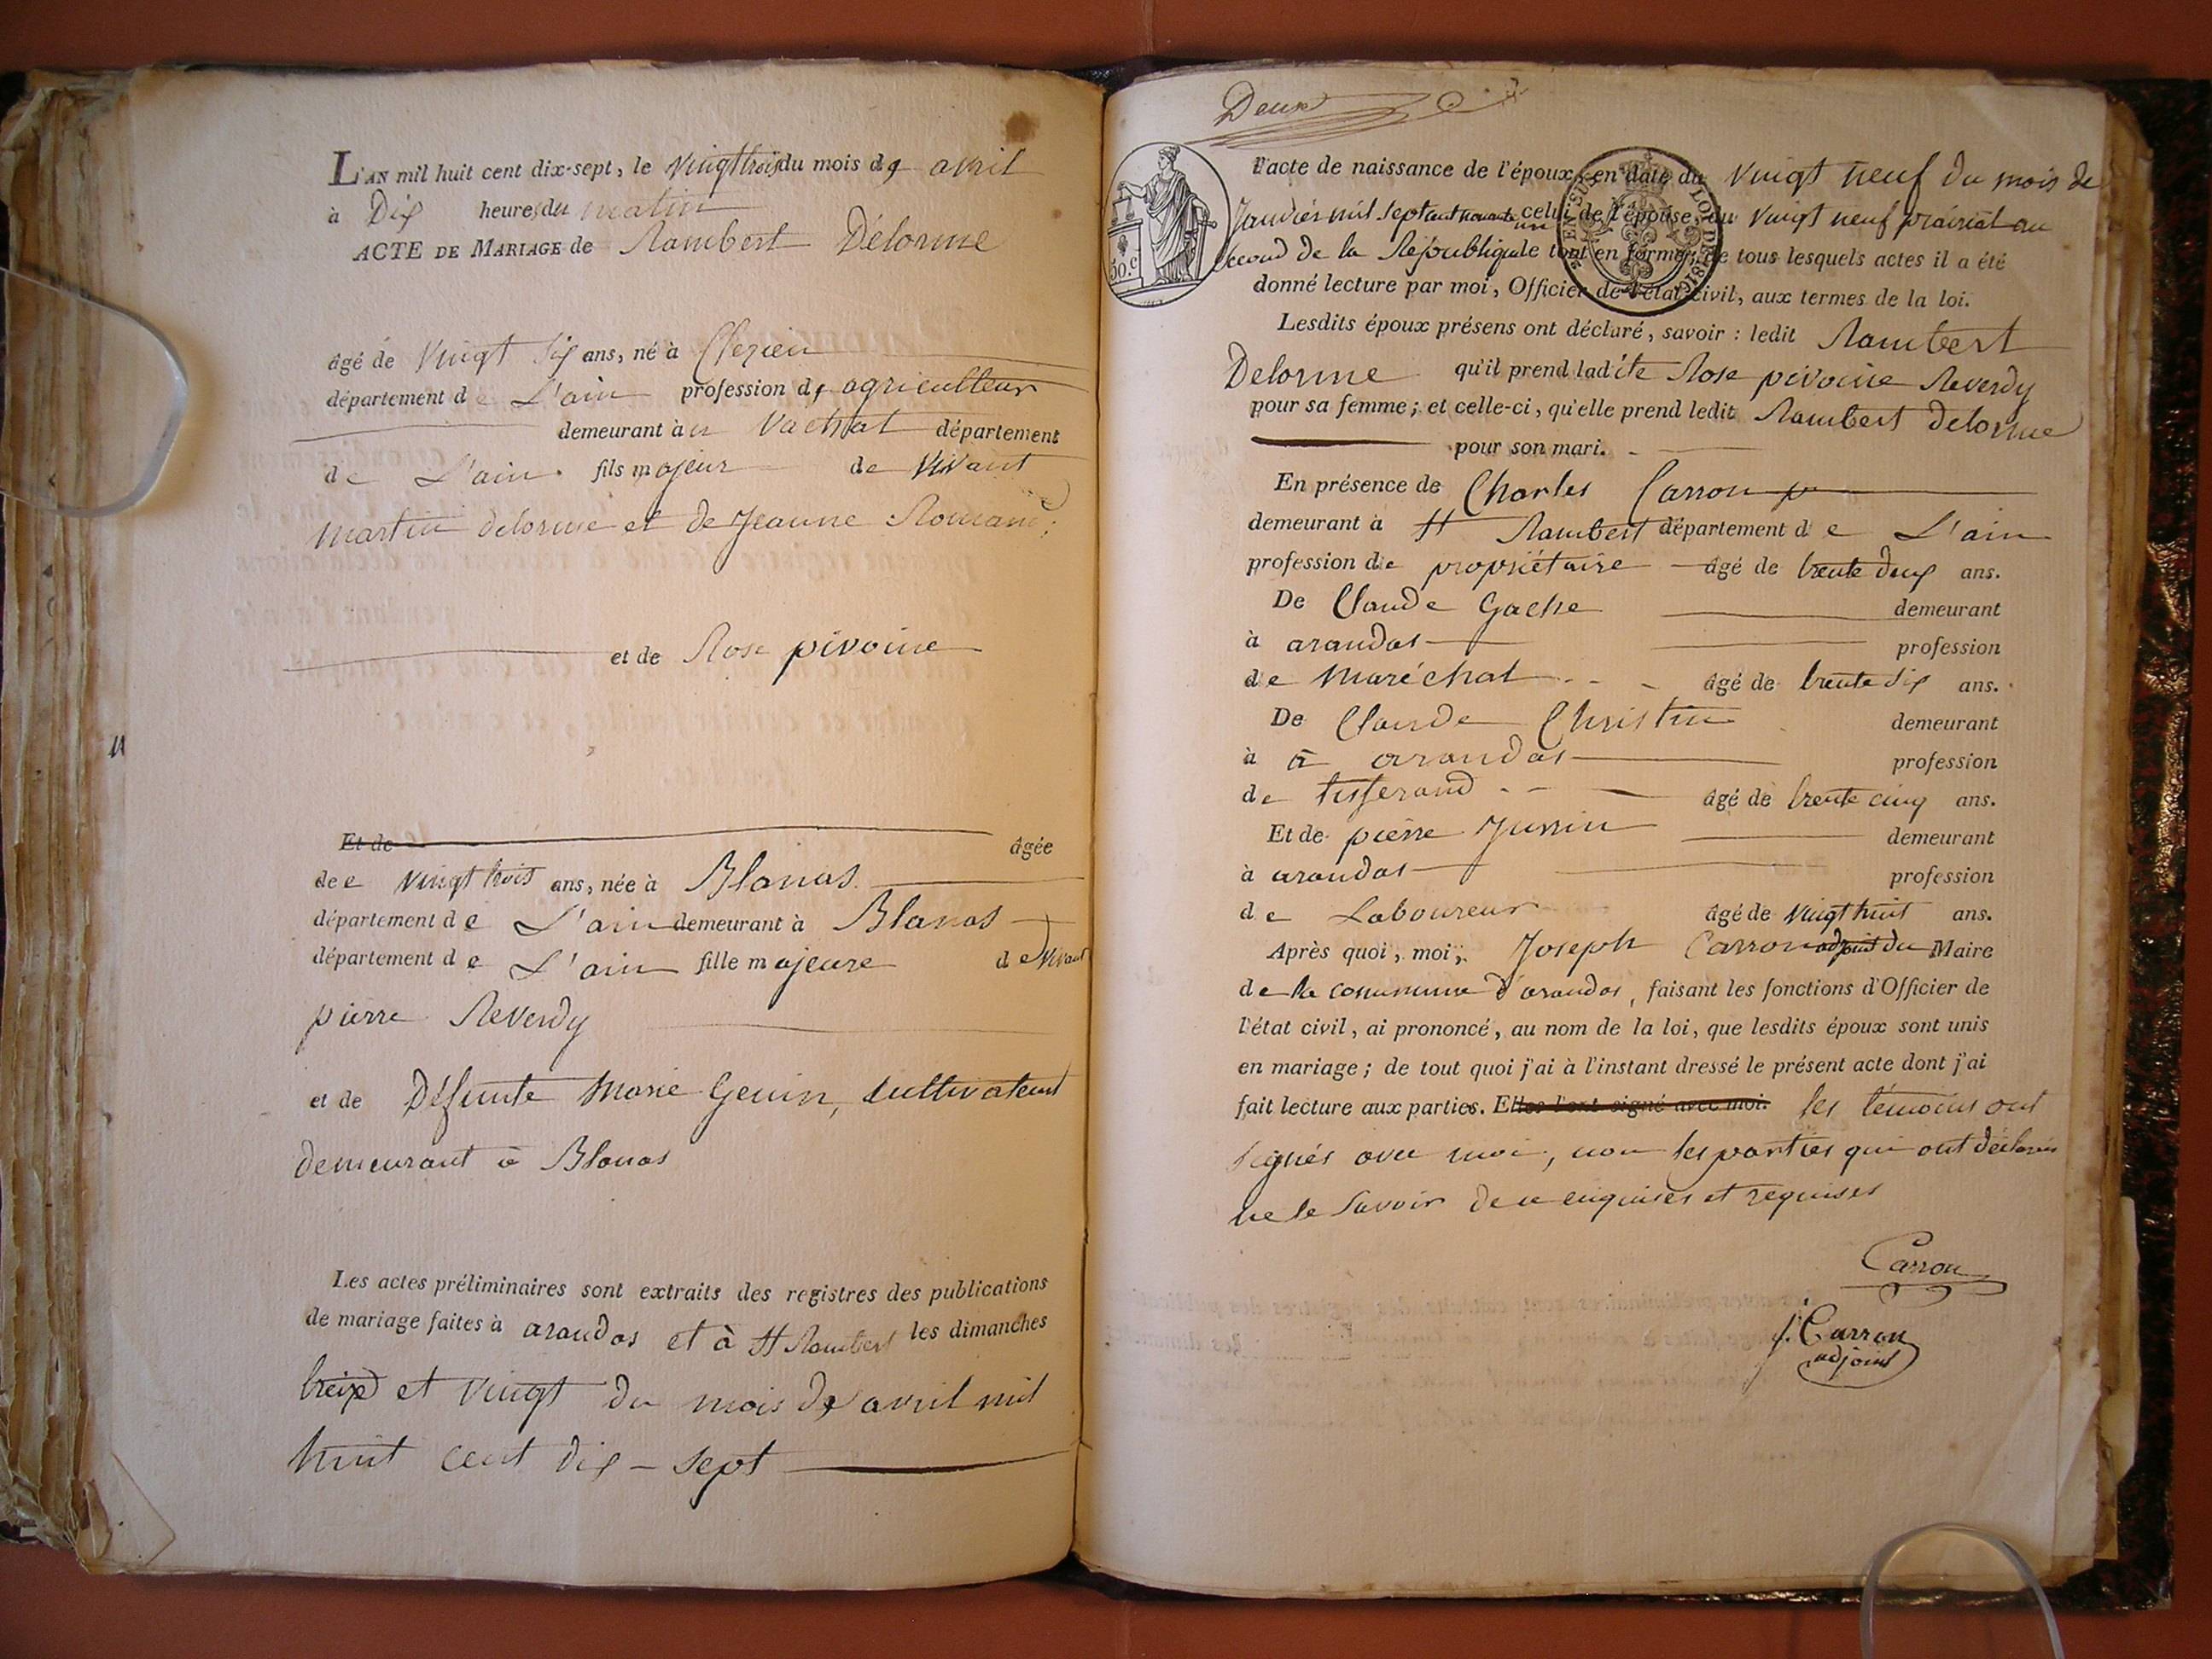 L'AN mil huit cent dix-sept, le vingt trois du mois de avril
à Dix heures du matin
ACTE DE MARIAGE de Rambert Délorme
âgé de vingt six ans, né à Clezieu
département de L'ain profession de agriculteur
demeurant à Vachat département
de L'ain fils majeur de vivant
martin delorme et de Jeanne Romand
et de Rose pivoine
Et de âgée
de vingt trois ans, née à Blanas
département de L'ain demeurant à Blanas
département de L'ain fille majeure de vivant
pierre Reverdy
et de Défunte Marie Genin, cultivateurs
demeurant à Blanas
Les actes préliminaires sont extraits des registres des publications
de mariage faites à arandas et à St Rambert les dimanches
treize et vingt du mois de avril mil
huit cent dix-sept
Deux
l'acte de naissance de l'époux, en date du vingt neuf du mois de
Janvier mil sept cent nonante un celui de l'épouse, du vingt neuf prairial an
second de la République le tout en forme; de tous lesquels actes il a été
50.c
donné lecture par moi, Officier de l'état civil, aux termes de la loi.
Lesdits époux présens ont déclaré, savoir : ledit Rambert
Delorme qu'il prend ladite Rose pivoine Reverdy
pour sa femme; et celle-ci, qu'elle prend ledit Rambert Delorme
pour son mari.
En présence de Charles Carron
demeurant à St Rambert département de L'ain
profession de propriétaire âgé de trente deux ans.
De Claude Gache demeurant
à arandas profession
de Maréchal âgé de trente six ans.
De Claude Christin demeurant
à à arandas profession
de tisserand âgé de trente cinq ans.
Et de pierre Jussin demeurant
à arandas profession
de Laboureur âgé de vingt huit ans.
Après quoi, moi, Joseph Carron adjoint du Maire
de la commune d'arandas, faisant les fonctions d'Officier de
l'état civil, ai prononcé, au nom de la loi, que lesdits époux sont unis
en mariage; de tout quoi j'ai à l'instant dressé le présent acte dont j'ai
fait lecture aux parties. Elles l'ont signé avec moi. les témoins ont
signés avec moi, non les parties qui ont déclarés
ne le savoir de ce enquises et requises
Carron
j. Carron
adjoint